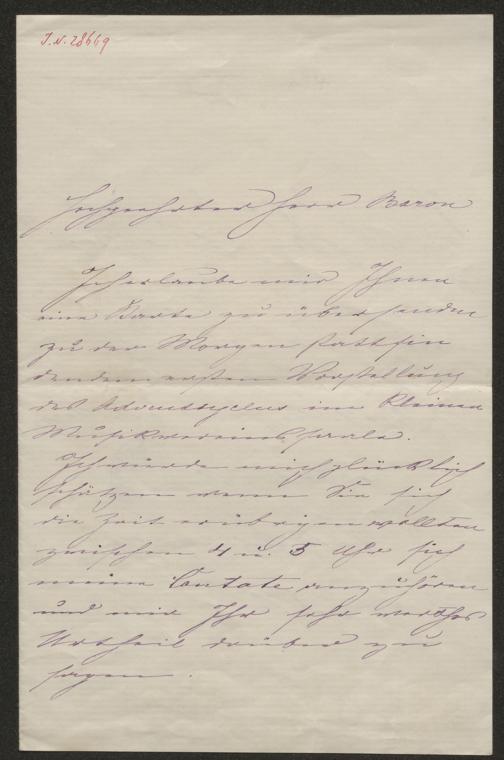 I.N. 28669
Hochgeehrter Herr Baron
Ich erlaube mir Ihnen
eine Karte zu übersenden
zu der Morgen stattfin
dendem ersten Vorstellung
des Adventcyclus im kleinen
Musikvereinssaale.
Ich würde mich glücklich
schätzen wenn Sie sich
die Zeit erübrigen wollten
zwischen 4 u. 5 Uhr sich
meine Cantate anzuhören
und mir Ihr sehr werthes
Urtheil drüber zu
sagen.